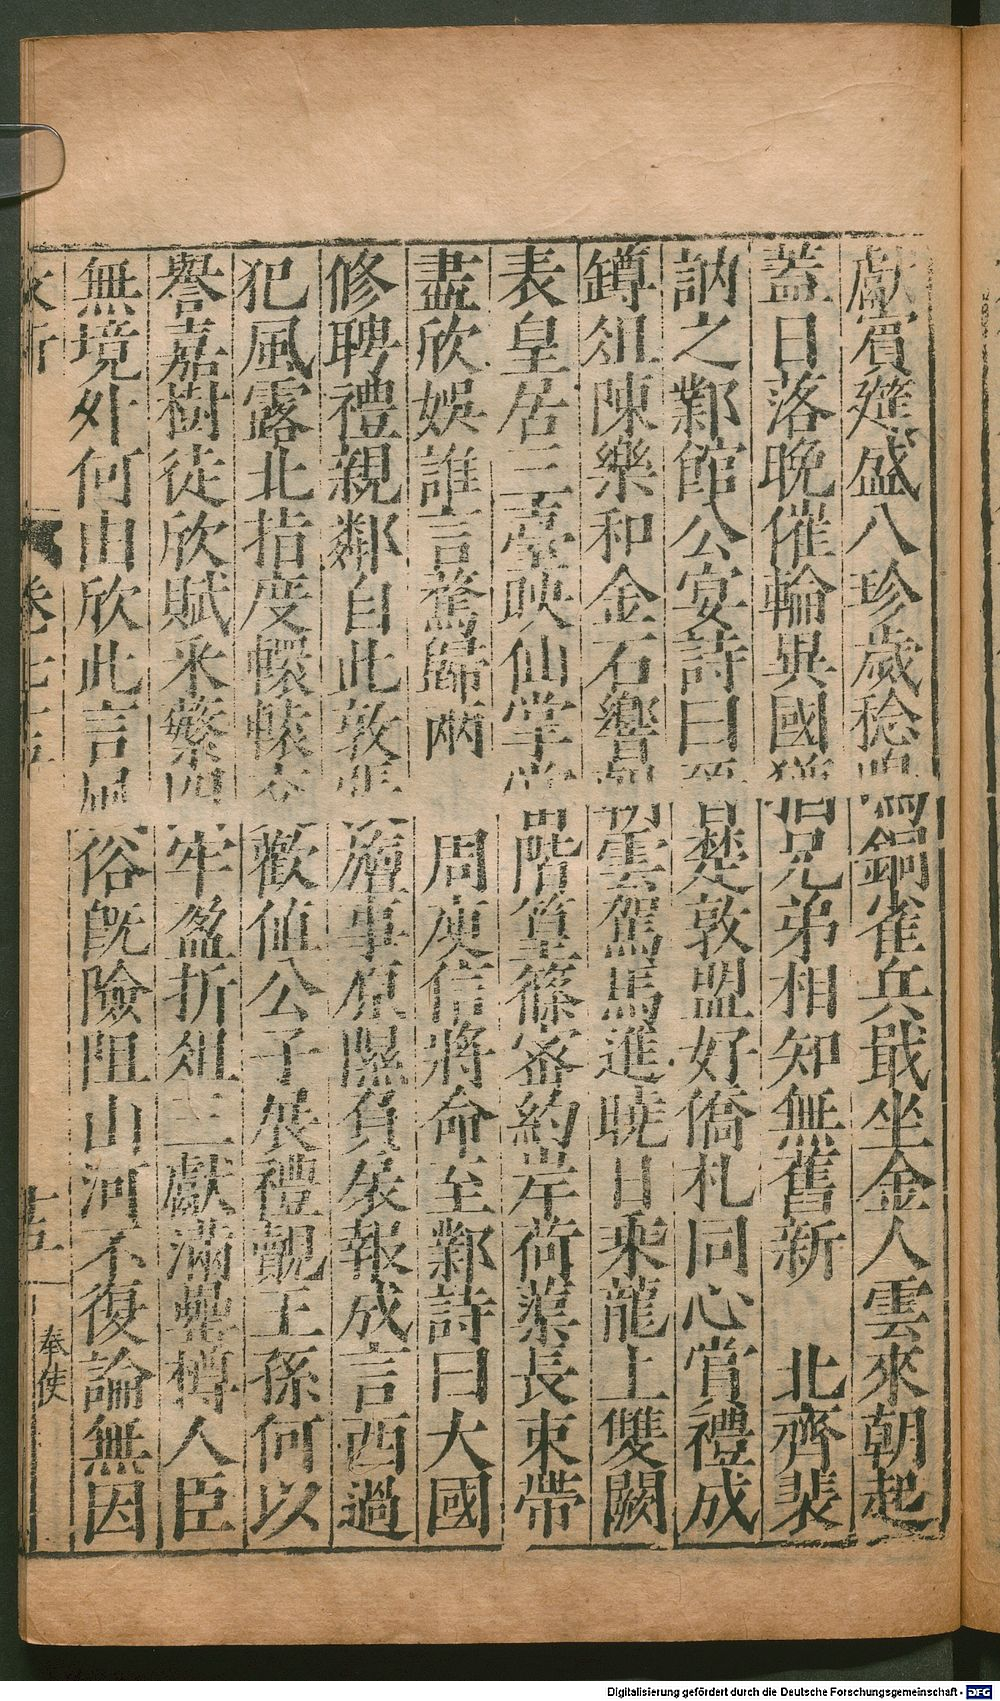 獻賓筵盛八珍歲稔銅雀兵戢坐金人雲來朝起
蓋日落晚催輪異國猶兄弟相知無舊新 北齊裴
訥之鄴館公宴詩曰晉楚敦盟好僑札同心賞禮成
罇俎陳樂和金石響雲駕馬進曉日乘龍上雙闕
表皇居三臺映仙掌階篁篠密約岸荷蕖長束帶
盡欣娛誰言騖歸兩 周庾信將命至鄴詩曰大國
修聘禮親鄰自此敦旃事原隰負扆報成言西過
犯風露北指度轘轅歡值公子展禮覿王孫何以
譽嘉樹徒欣賦采蘩四牢盈折俎三獻滿罍樽人臣
無境外何由欣此言風俗既險阻山河不復論無因
卷 十五 奉使
Digitalisierung gefördert durch die Deutsche Forschungsgemeinschaft - DFG